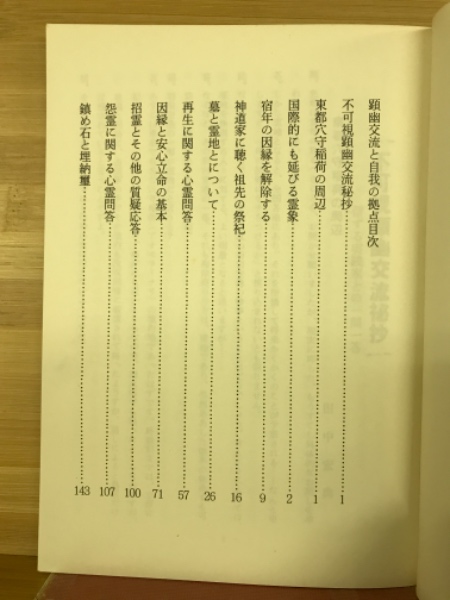 顕幽交流と自我の拠点目次
不可視顕幽交流秘抄……1
東都穴守稲荷の周辺……1
国際的にも延びる霊象……2
宿年の因縁を解除する……9
神道家に聴く祖先の祭祀……16
墓と霊地とについて……26
再生に関する心霊問答……57
因縁と安心立命の基本……71
招霊とその他の質疑応答……100
怨霊に関する心霊問答……107
鎮め石と埋納璽……143